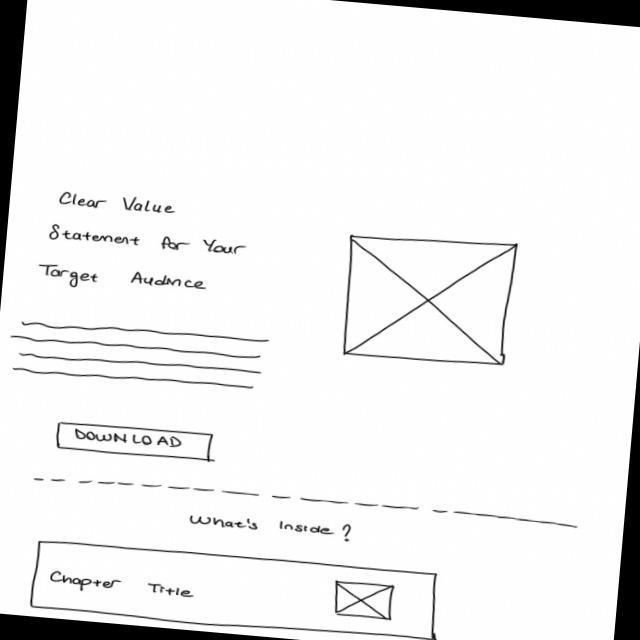 Clear Value
Statement for Your
Target Audince
DOWNLOAD
What's Inside?
Chapter Title